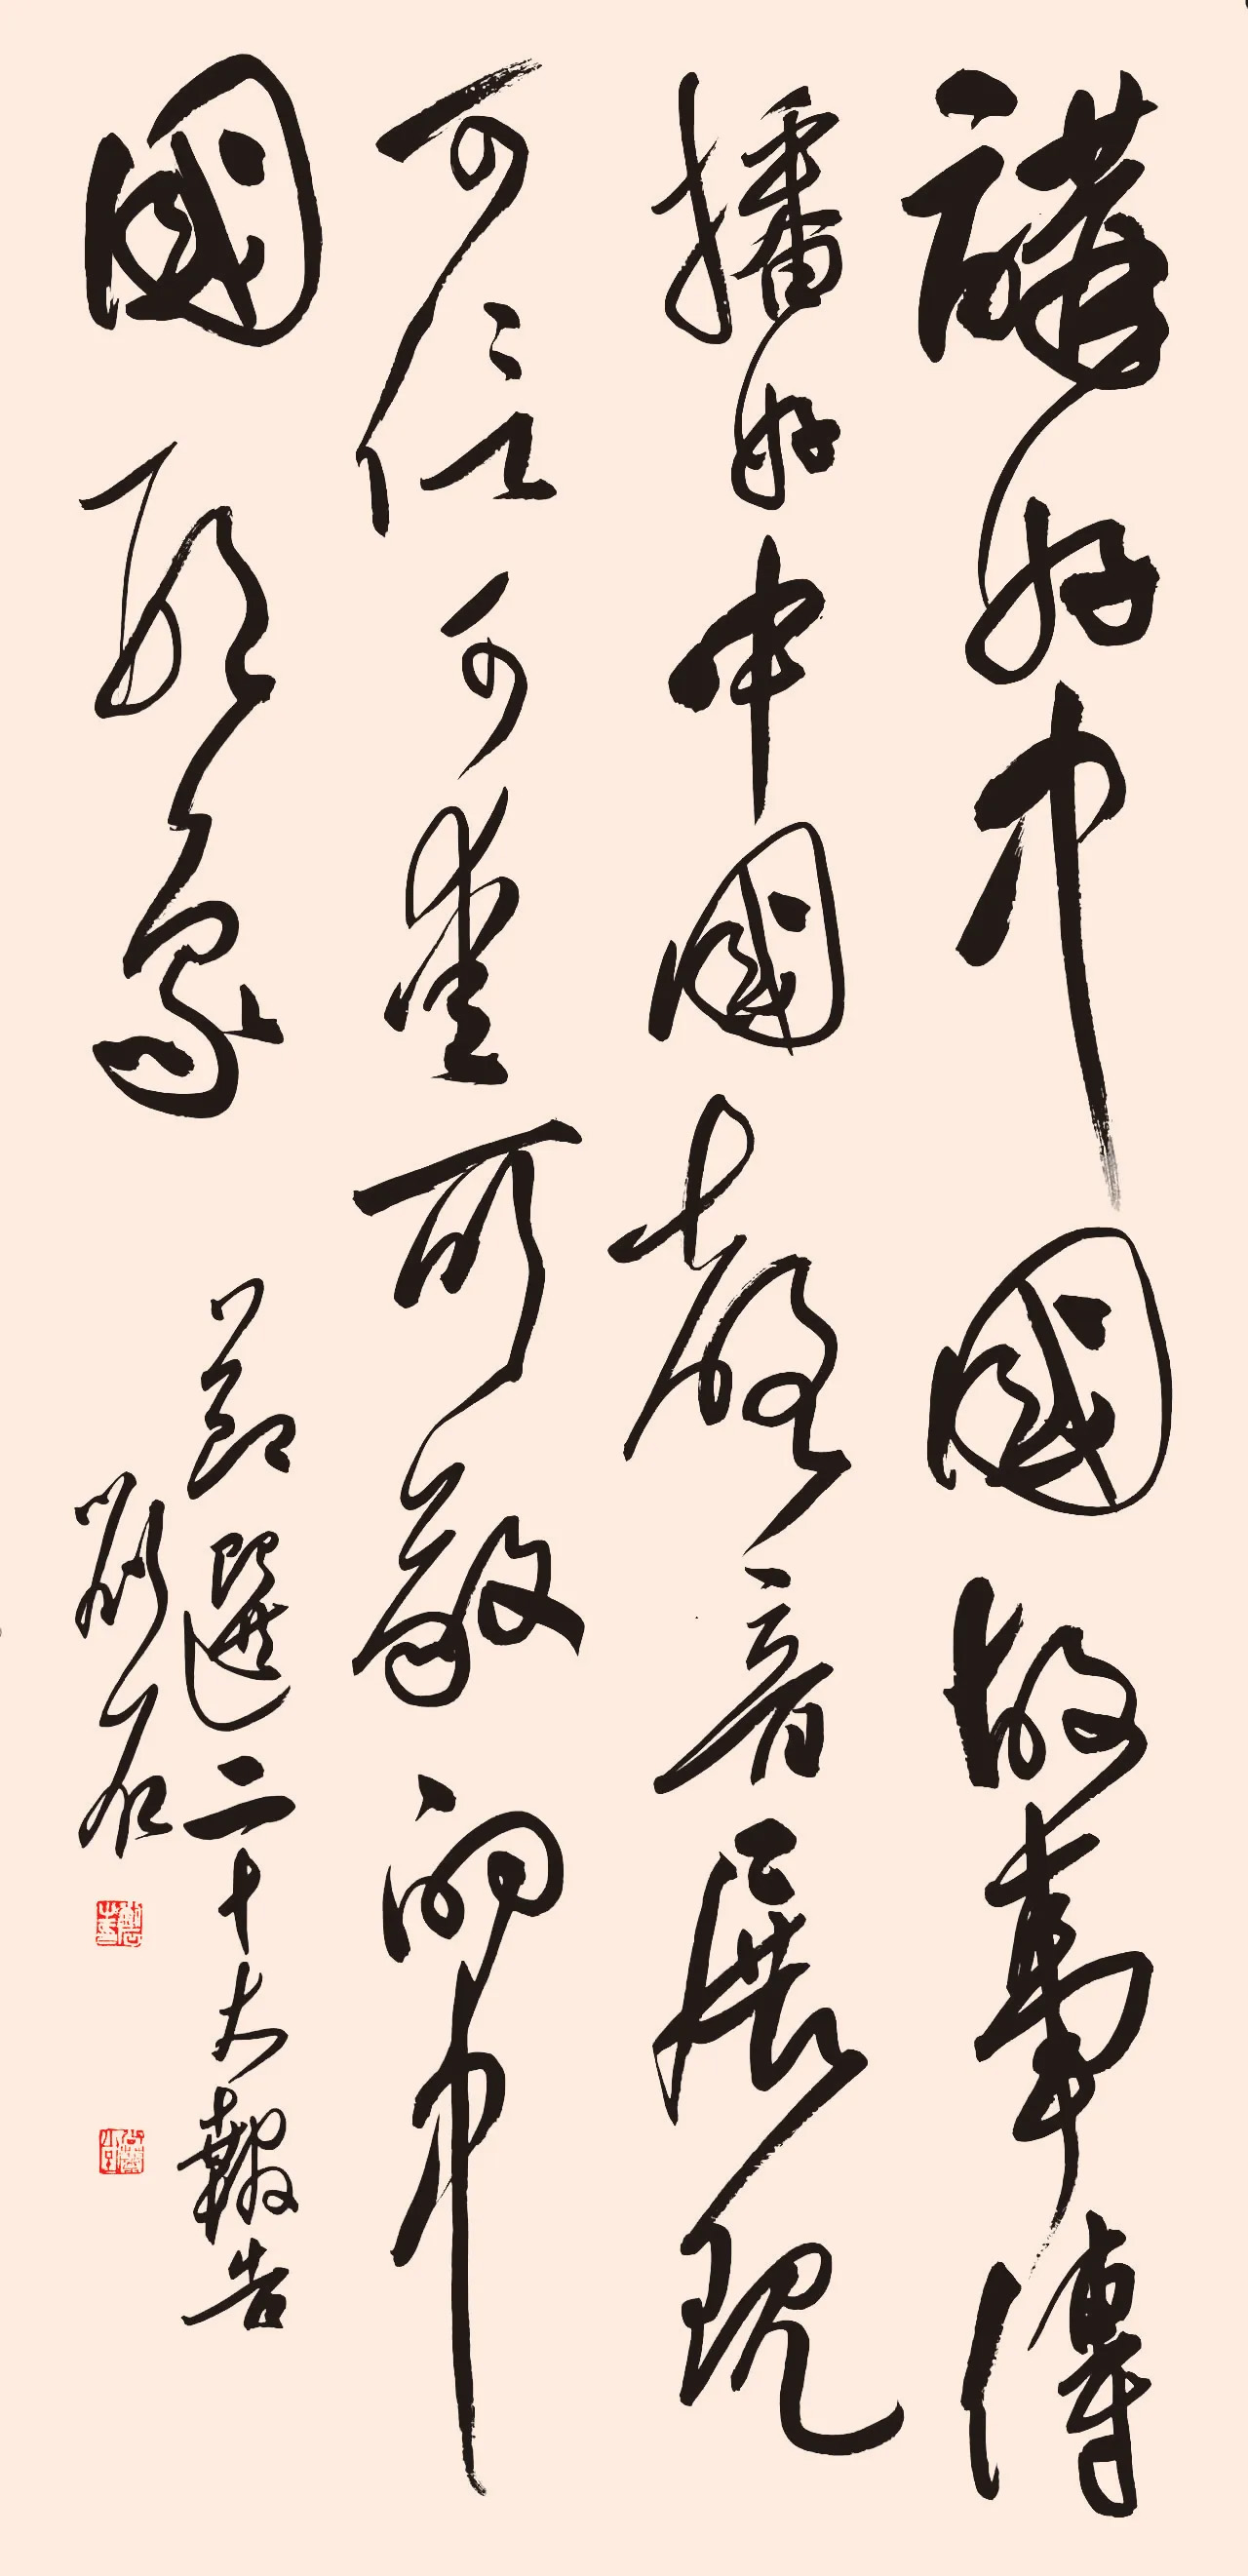 講好中國故事傳
播好中國聲音展現
可信可愛可敬的中
國形象
節選二十大報告